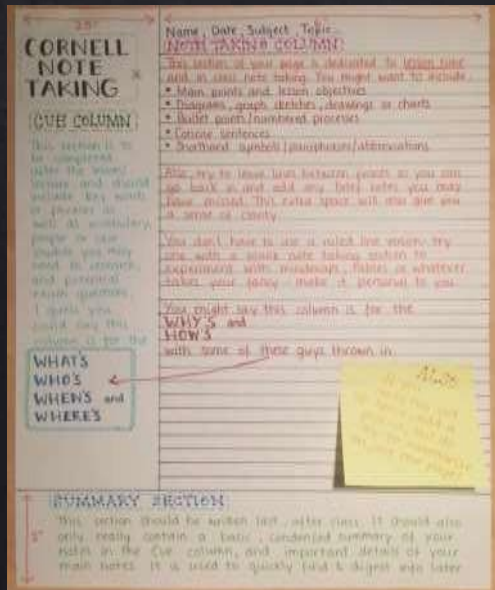 2.5"
CORNELL
NOTE
TAKING
CUE COLUMN
This section is to
be completed
after the lesson/
lecture and should
include key words
or phrases as
well as vocabulary,
people or case
studies you may
need to research,
and potential
exam questions.
I guess you
could say this
column is for the
WHAT'S
WHO'S
WHEN'S and
WHERE'S
Name, Date, Subject, Topic
NOTE TAKING COLUMN
This section of your page is dedicated to lesson time
and in class note taking. You might want to include:
• Main points and lesson objectives
• Diagrams, graph sketches, drawings or charts
• Bullet points/numbered processes
• Concise sentences
• Shorthand symbols/paraphrases/abbreviations
Also, try to leave lines between points so you can
go back in and add any brief notes you may
have missed. This extra space will also give you
a sense of clarity.
You don't have to use a ruled line version, try
one with a note taking section to
experiment with mindmaps, tables or whatever
takes your fancy - make it personal to you.
You might say this column is for the
WHY'S and
HOW'S
with some of these guys thrown in.
SUMMARY SECTION
2"
This section should be written last, after class. It should also
only really contain a basic, condensed summary of your
notes in the Cue column, and important details of your
main notes. It is used to quickly find & digest info later